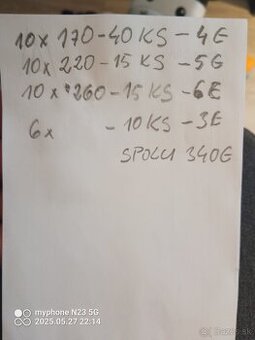 10x 170-40 KS -4E
10x 220-15 KS -5G
10x 260-15 KS -6E
6x -10KS -3E
SPOLU 340G
myphone N23 5G
2025.05.27 22:14